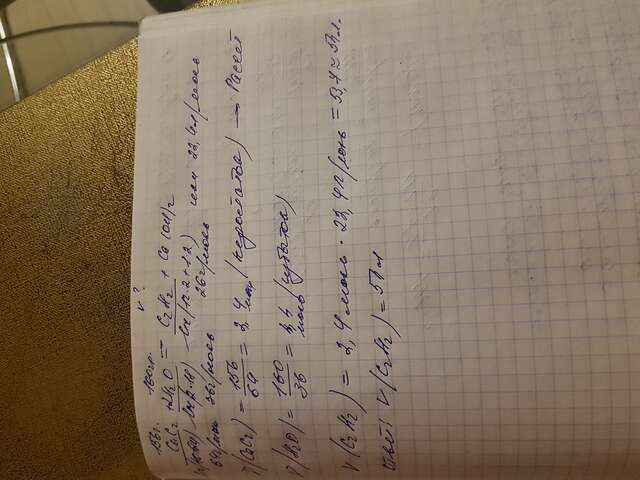 156г. 160гр. V?
CaC₂ + 2H₂O = C₂H₂ + Ca(OH)₂
64г/моль 36г/моль 26г/моль или 22,4л/моль
(CaC₂) = 156/64 = 2,4 моль (недостаток) → Расчет
(H₂O) = 160/36 = 4,4 моль (избыток)
V(C₂H₂) = 2,4 моль · 22,4л/моль = 53,7 ≈ 54л.
Ответ: V(C₂H₂) = 54л